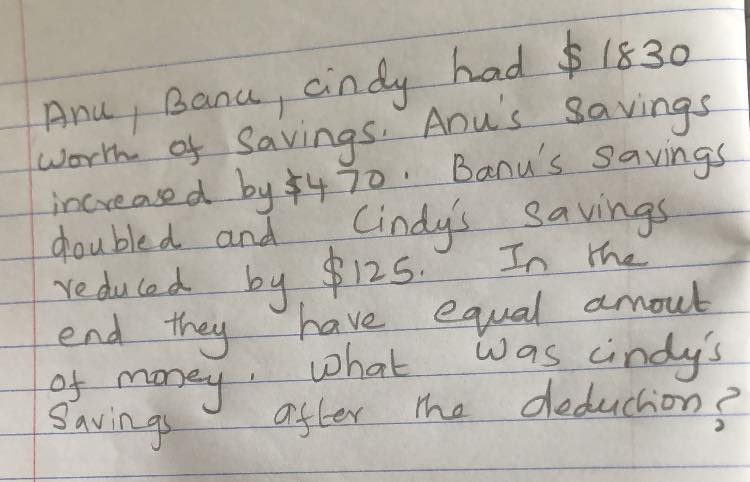 Anu, Banu, cindy had $1830
worth of Savings. Anu's Savings
increased by $470. Banu's Savings
doubled and Cindy's Savings
reduced by $125. In the
end they have equal amout
of money. What was cindy's
Savings after the deduction?